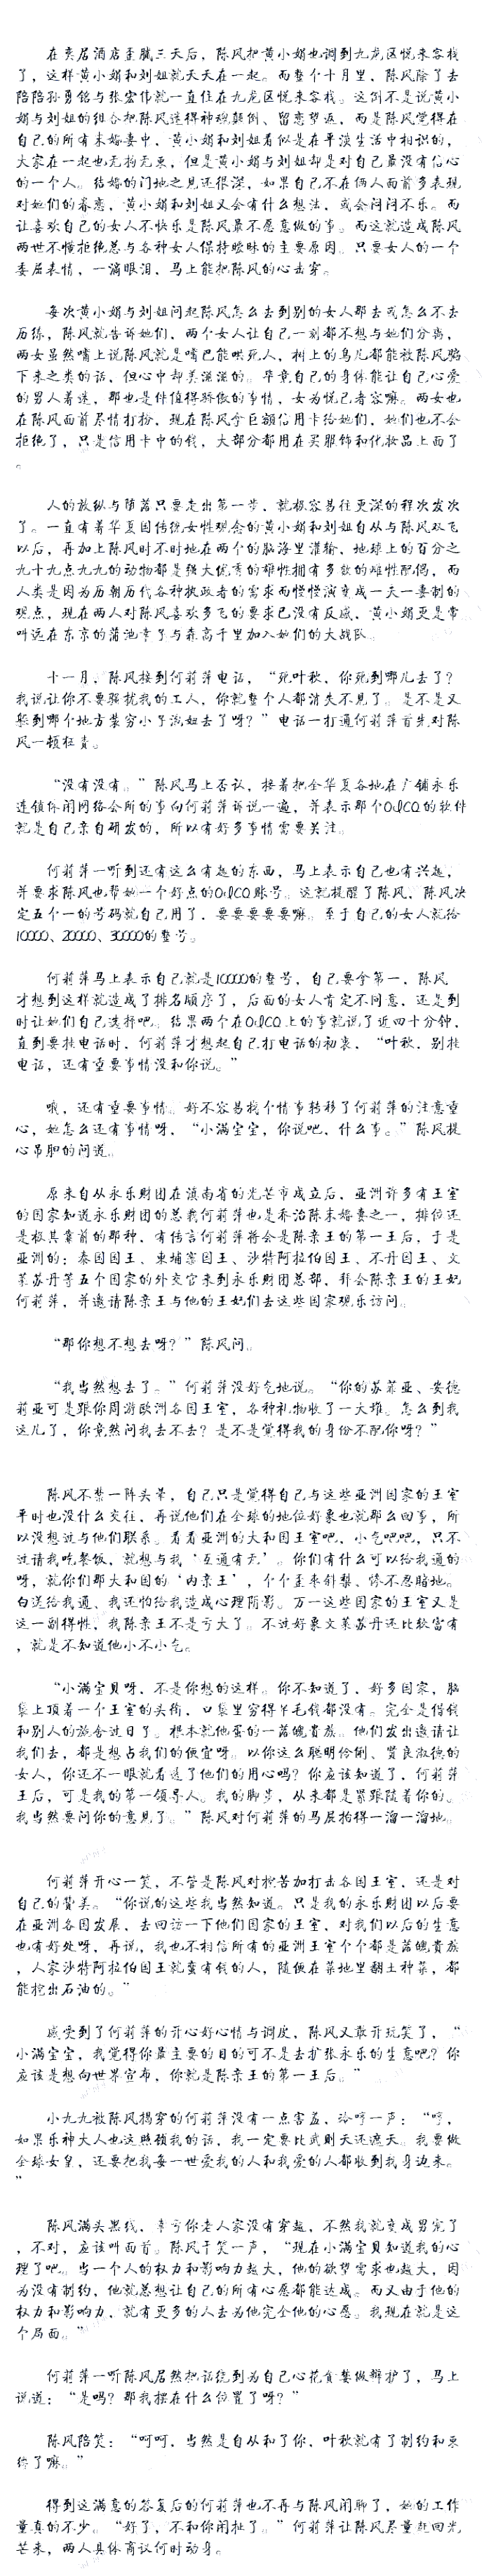 在奕居酒店歪腻三天后，陈风把黄小娟也调到九龙区悦来客栈
了，这样黄小娟和刘姐就天天在一起。而整个十月里，陈风除了去
陪陪孙勇铭与张宏伟就一直住在九龙区悦来客栈。这倒不是说黄小
娟与刘姐的组合把陈风迷得神魂颠倒、留恋忘返，而是陈风觉得在
自己的所有未婚妻中，黄小娟和刘姐看似是在平淡生活中相识的，
大家在一起也无拘无束，但是黄小娟与刘姐却是对自己最没有信心
的一个人。结婚的门地之见还很深，如果自己不在俩人面前多表现
对她们的眷恋，黄小娟和刘姐又会有什么想法，或会闷闷不乐。而
让喜欢自己的女人不快乐是陈风最不愿意做的事。而这就造成陈风
两世不懂拒绝总与各种女人保持暧昧的主要原因。只要女人的一个
委屈表情，一滴眼泪，马上能把陈风的心击穿。
每次黄小娟与刘姐问起陈风怎么去到别的女人那去或怎么不去
历练，陈风就告诉她们，两个女人让自己一刻都不想与她们分离，
两女虽然嘴上说陈风就是嘴巴能哄死人，树上的鸟儿都能被陈风骗
下来之类的话，但心中却美滋滋的。毕竟自己的身体能让自己心爱
的男人着迷，那也是件值得骄傲的事情，女为悦己者容嘛。两女也
在陈风面前尽情打扮，现在陈风拿巨额信用卡给她们，她们也不会
拒绝了，只是信用卡中的钱，大部分都用在买服饰和化妆品上面了
。
人的放纵与堕落只要走出第一步，就极容易往更深的程次发次
了。一直有着华夏国传统女性观念的黄小娟和刘姐自从与陈风双飞
以后，再加上陈风时不时地在两个的脑海里灌输，地球上的百分之
九十九点九九的动物都是强大优秀的雄性拥有多数的雌性配偶，而
人类是因为历朝历代各种执政者的需求而慢慢演变成一夫一妻制的
观点，现在两人对陈风喜欢多飞的要求已没有反感，黄小娟更是常
叫远在东京的蒲池幸子与森高千里加入她们的大战队。
十一月，陈风接到何莉萍电话，“死叶秋，你死到哪儿去了？
我说让你不要骚扰我的工人，你就整个人都消失不见了。是不是又
躲到哪个地方装穷小子泡妞去了呀？”电话一打通何莉萍首先对陈
风一顿狂责。
“没有没有。”陈风马上否认，接着把全华夏各地在广铺永乐
连锁休闲网络会所的事向何莉萍诉说一遍，并表示那个OICQ的软件
就是自己亲自研发的，所以有好多事情需要关注。
何莉萍一听到还有这么有趣的东西，马上表示自己也有兴趣，
并要求陈风也帮她一个好点的OICQ账号。这就提醒了陈风，陈风决
定五个一的号码就自己用了，要要要要要嘛。至于自己的女人就给
10000、20000、30000的整号。
何莉萍马上表示自己就是10000的整号，自己要拿第一，陈风
才想到这样就造成了排名顺序了，后面的女人肯定不同意，还是到
时让她们自己选择吧。结果两个在OICQ上的事就说了近四十分钟，
直到要挂电话时，何莉萍才想起自己打电话的初衷，“叶秋，别挂
电话，还有重要事情没和你说。”
哦，还有重要事情，好不容易找个情事转移了何莉萍的注意重
心，她怎么还有事情呀，“小满宝宝，你说吧，什么事。”陈风提
心吊胆的问道。
原来自从永乐财团在滇南省的光芒市成立后，亚洲许多有王室
的国家知道永乐财团的总裁何莉萍也是乔治陈未婚妻之一，排位还
是极其靠前的那种，有传言何莉萍将会是陈亲王的第一王后，于是
亚洲的：泰国国王、柬埔寨国王、沙特阿拉伯国王、不丹国王、文
莱苏丹等五个国家的外交官来到永乐财团总部，拜会陈亲王的王妃
何莉萍，并邀请陈亲王与他的王妃们去这些国家观乐访问。
“那你想不想去呀？”陈风问。
“我当然想去了。”何莉萍没好气地说。“你的苏菲亚、安德
莉亚可是跟你周游欧洲各国王室，各种礼物收了一大堆。怎么到我
这儿了，你竟然问我去不去？是不是觉得我的身份不配你呀？”
陈风不禁一阵头晕，自己只是觉得自己与这些亚洲国家的王室
平时也没什么交往，再说他们在全球的地位好象也就那么回事，所
以没想过与他们联系。看看亚洲的大和国王室吧，小气吧吧，只不
过请我吃餐饭，就想与我‘互通有无’。你们有什么可以给我通的
呀，就你们那大和国的‘内亲王’，个个歪来斜裂、惨不忍睹地。
白送给我通，我还怕给我造成心理阴影。万一这些国家的王室又是
这一副得性，我陈亲王不是亏大了。不过好象文莱苏丹还比较富有
，就是不知道他小不小气。
“小满宝贝呀，不是你想的这样。你不知道了，好多国家，脑
袋上顶着一个王室的头衔，口袋里穷得羊毛钱都没有。完全是借钱
和别人的施舍过日了。根本就他蛋的一落魄贵族。他们发出邀请让
我们去，都是想占我们的便宜呀。以你这么聪明伶俐、贤良淑德的
女人，你还不一眼就看透了他们的用心吗？你应该知道了，何莉萍
王后，可是我的第一领导人。我的脚步，从来都是紧跟随着你的。
我当然要问你的意见了。”陈风对何莉萍的马屁拍得一溜一溜地。
何莉萍开心一笑，不管是陈风对挖苦加打击各国王室，还是对
自己的赞美。“你说的这些我当然知道。只是我的永乐财团以后要
在亚洲各国发展，去回访一下他们国家的王室，对我们以后的生意
也有好处呀，再说，我也不相信所有的亚洲王室个个都是落魄贵族
，人家沙特阿拉伯国王就蛮有钱的人，随便在菜地里翻土种菜，都
能挖出石油的。”
感受到了何莉萍的开心好心情与调皮，陈风又敢开玩笑了，“
小满宝宝，我觉得你最主要的目的可不是去扩张永乐的生意吧？你
应该是想向世界宣布，你就是陈亲王的第一王后。”
小九九被陈风揭穿的何莉萍没有一点害羞，冷哼一声：“哼，
如果乐神大人也这照顾我的话，我一定要比武则天还遮天。我要做
全球女皇，还要把我每一世爱我的人和我爱的人都收到我身边来。
”
陈风满头黑线，幸亏你老人家没有穿越，不然我就变成男宠了
，不对，应该叫面首。陈风干笑一声，“现在小满宝贝知道我的心
理了吧。当一个人的权力和影响力越大，他的欲望需求也越大，因
为没有制约，他就总想让自己的所有心愿都能达成。而又由于他的
权力和影响力，就有更多的人去为他完全他的心愿。我现在就是这
个局面。”
何莉萍一听陈风居然把话绕到为自己心花贪婪做辩护了，马上
说道：“是吗？那我摆在什么位置了呀？”
陈风陪笑：“呵呵，当然是自从和了你，叶秋就有了制约和束
缚了嘛。”
得到这满意的答复后的何莉萍也不再与陈风闲聊了，她的工作
量真的不少。“好了，不和你闲扯了。”何莉萍让陈风尽量赶回光
芒来，两人具体商议何时动身。